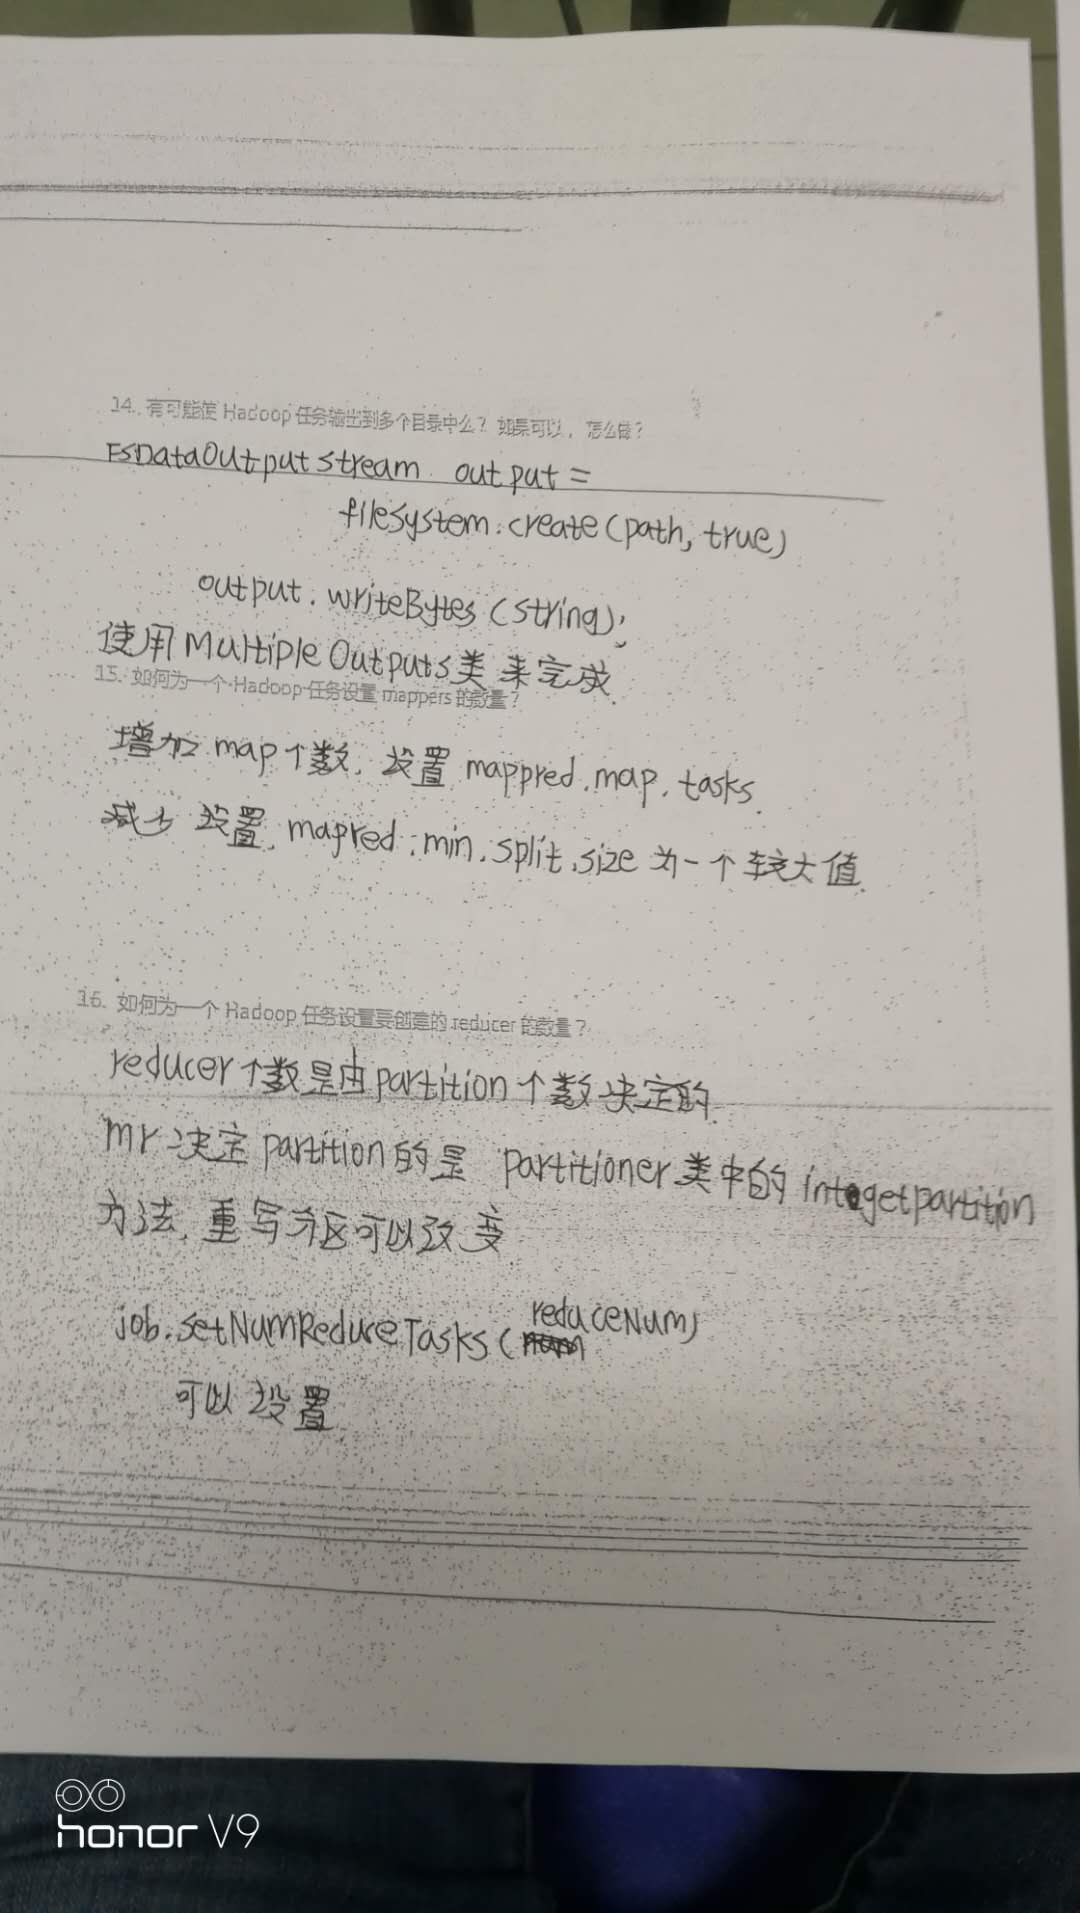 14. 有可能使 Hadoop 任务输出到多个目录中么？如果可以，怎么做？
FSDataOutputstream output =
filesystem.create(path, true)
output.writeBytes(string);
使用MultipleOutputs类来完成.
15. 如何为一个 Hadoop 任务设置 mappers 的数量？
增加map个数, 设置 mappred.map.tasks.
减少 设置, mapred.min.split.size 为一个较大值.
16. 如何为一个 Hadoop 任务设置要创建的 reducer 的数量？
reducer个数是由partition个数决定的.
mr决定partition的是 partitioner类中的 int getpartition
方法, 重写分区可以改变
job.setNumReduceTasks(reduceNum)
可以设置
honor V9